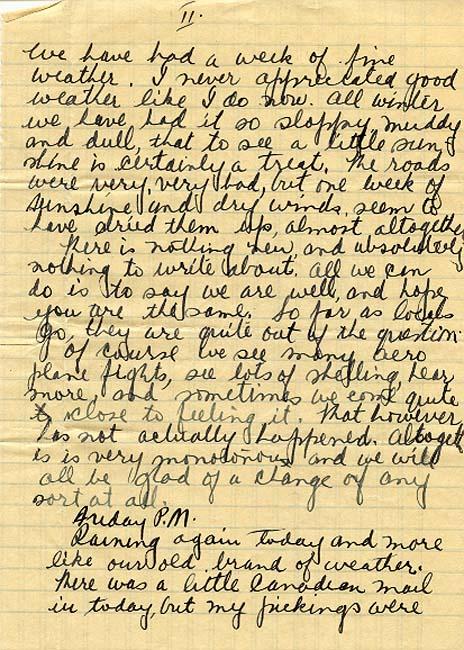 II.
We have had a week of fine
weather. I never appreciated good
weather like I do now. All winter
we have had it so sloppy, muddy
and dull, that to see a little sun-
shine is certainly a treat. The roads
were very, very bad, but one week of
sunshine and dry winds, seem to
have dried them up, almost altogether
There is nothing new, and absolutely
nothing to write about. All we can
do is to say we are well, and hope
you are the same. So far as locals
go, they are quite out of the question.
Of course we see many aero
plane fights, see lots of shelling, hear
more, and sometimes we come quite
close to feeling it. That however,
has not actually happened. Altogeth
is is very monotonous and we will
all be glad of a change of any
sort at all.
Friday P.M.
Raining again today and more
like our old brand of weather.
There was a little Canadian mail
in today, but my pickings were